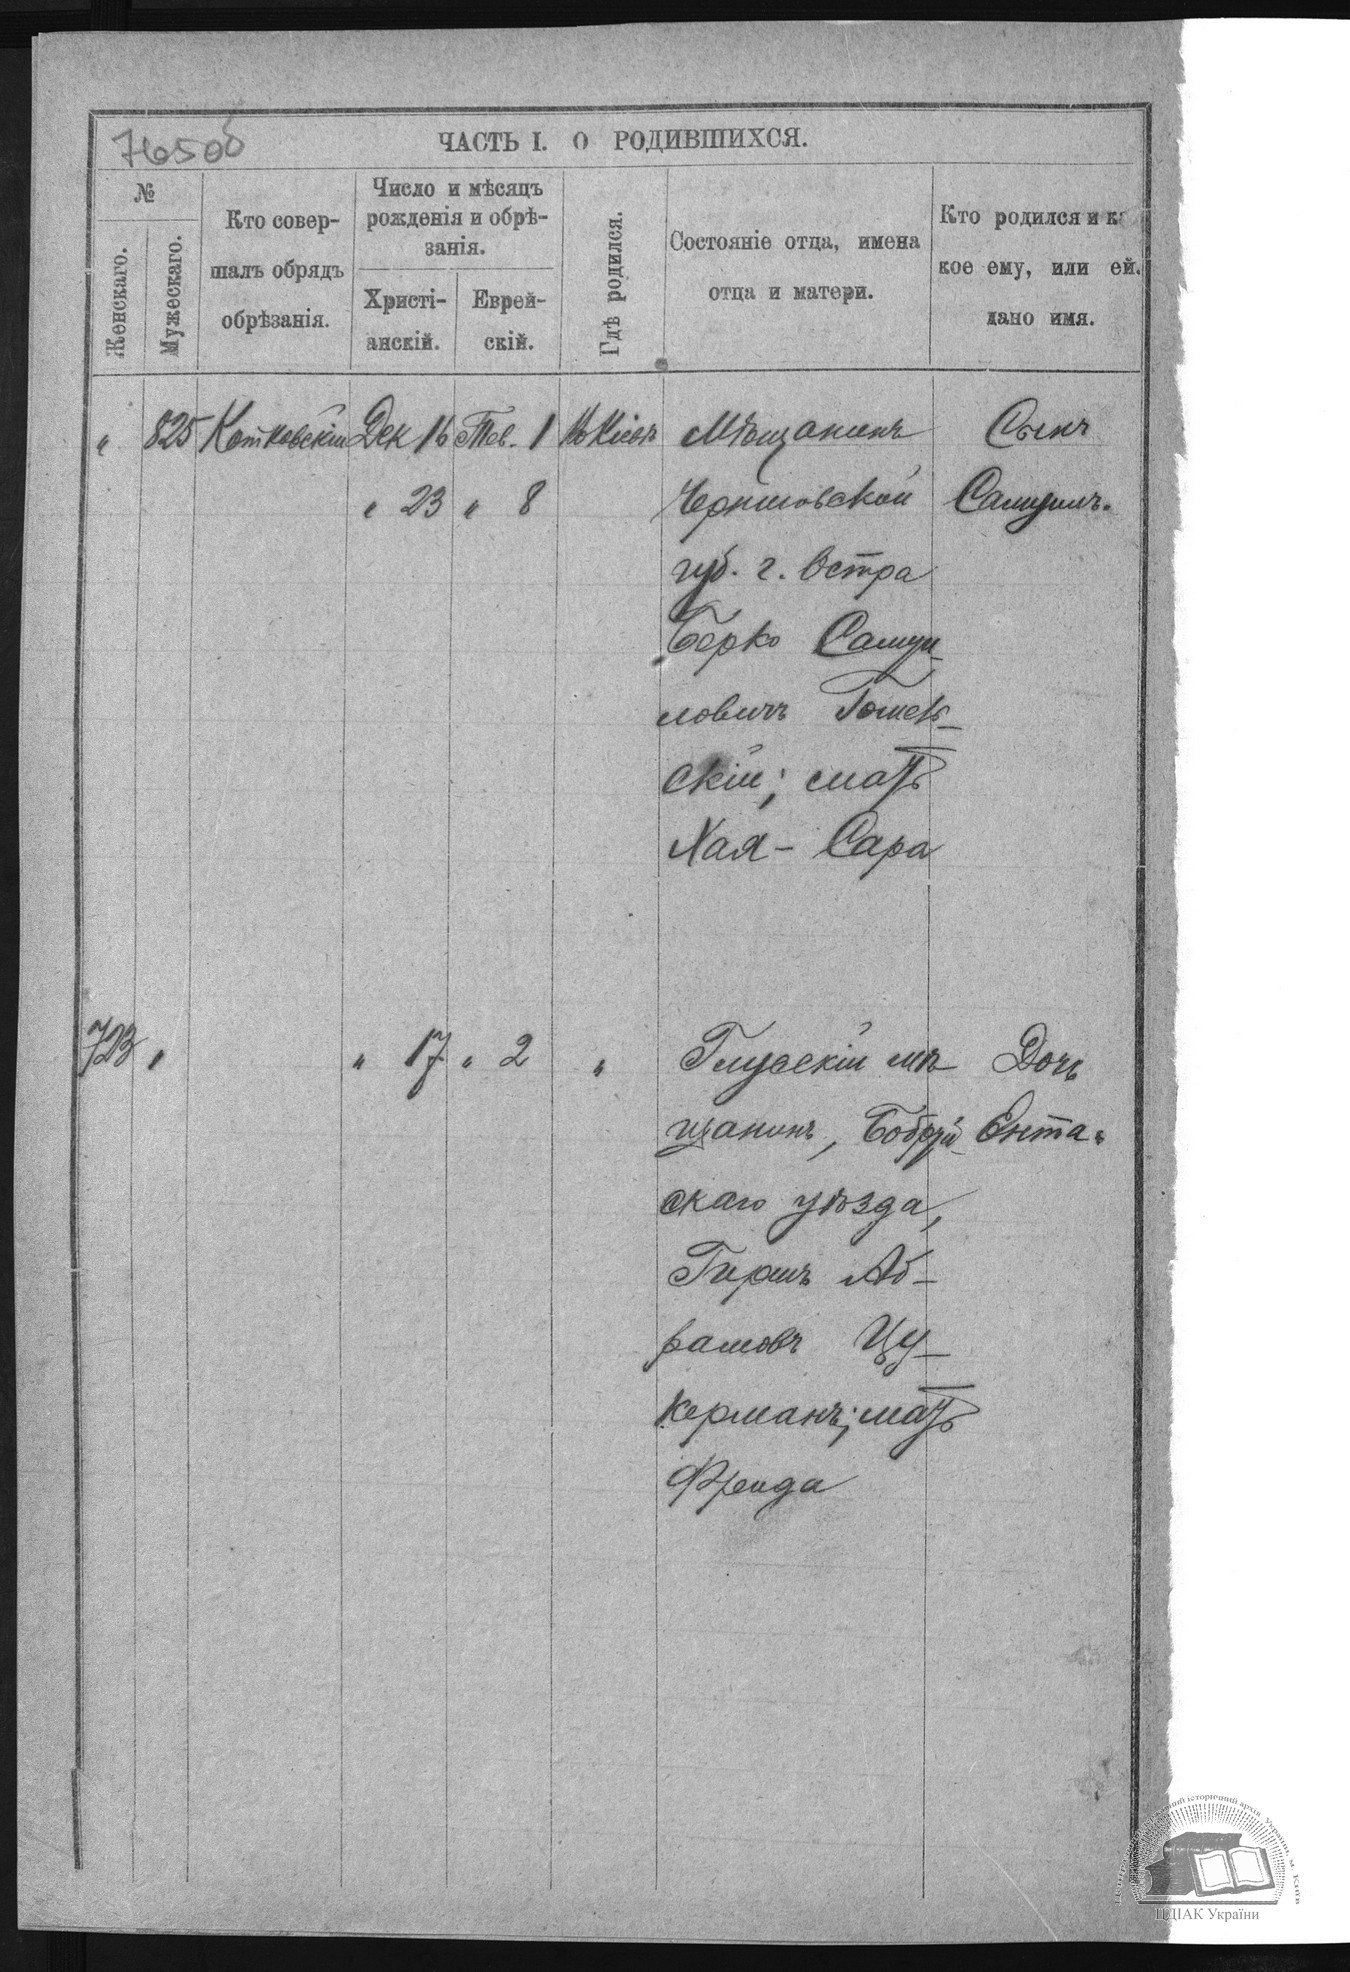 7650б
ЧАСТЬ I. О РОДИВШИХСЯ.
№
Женскаго.
Мужескаго.
Кто совер-
шалъ обрядъ
обрѣзанія.
Число и мѣсяцъ
рожденія и обрѣ-
занія.
Христі-
анскій.
Еврей-
скій.
Гдѣ родился.
Состояніе отца, имена
отца и матери.
Кто родился и ка
кое ему, или ей.
дано имя.
" 825 Котковскій Дек 16 Тев. 1 Въ Кіевѣ Мѣщанинъ Сынъ
" 23 " 8 Черниговской Самуилъ.
губ. г. Остра
Берко Самуи-
ловичъ Гомель-
скій; мать
Хая - Сара
723 " " 17 " 2 " Глусскій мѣ- Дочь
щанинъ, Бобруй- Ента.
скаго уѣзда,
Гиршъ Аб-
рамовъ Цу-
керманъ; мать
Фрейда
ЦДІАК України